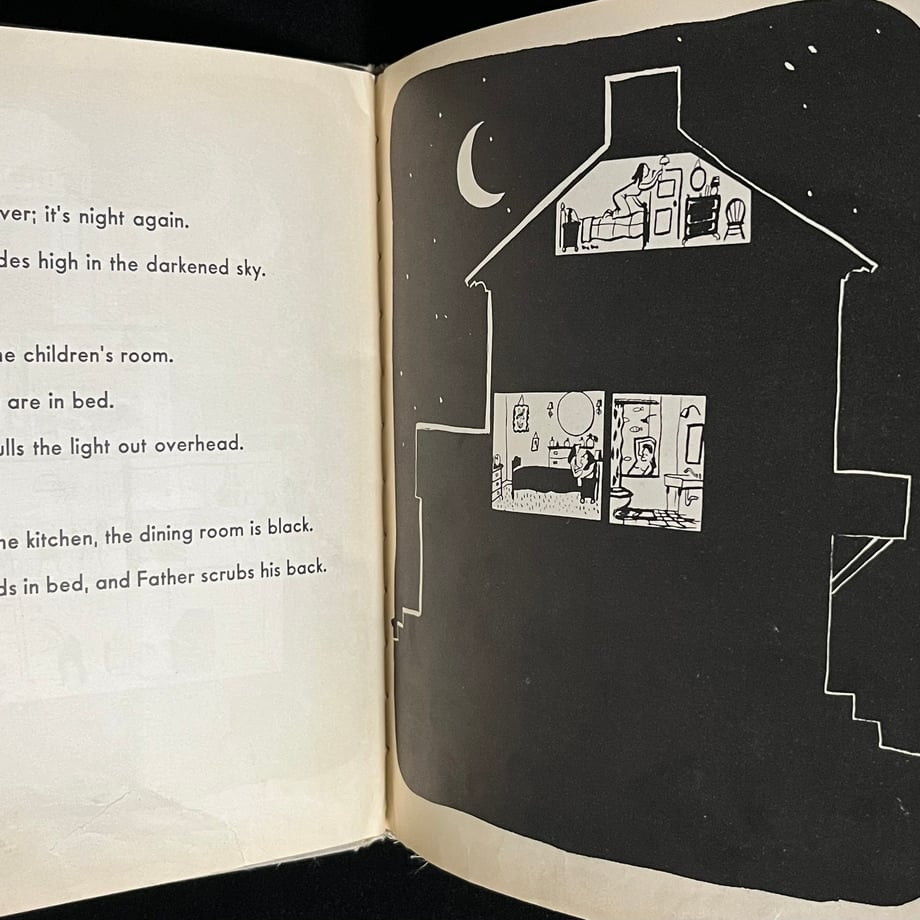 ver; it's night again.
des high in the darkened sky.
e children's room.
are in bed.
ulls the light out overhead.
he kitchen, the dining room is black.
ds in bed, and Father scrubs his back.